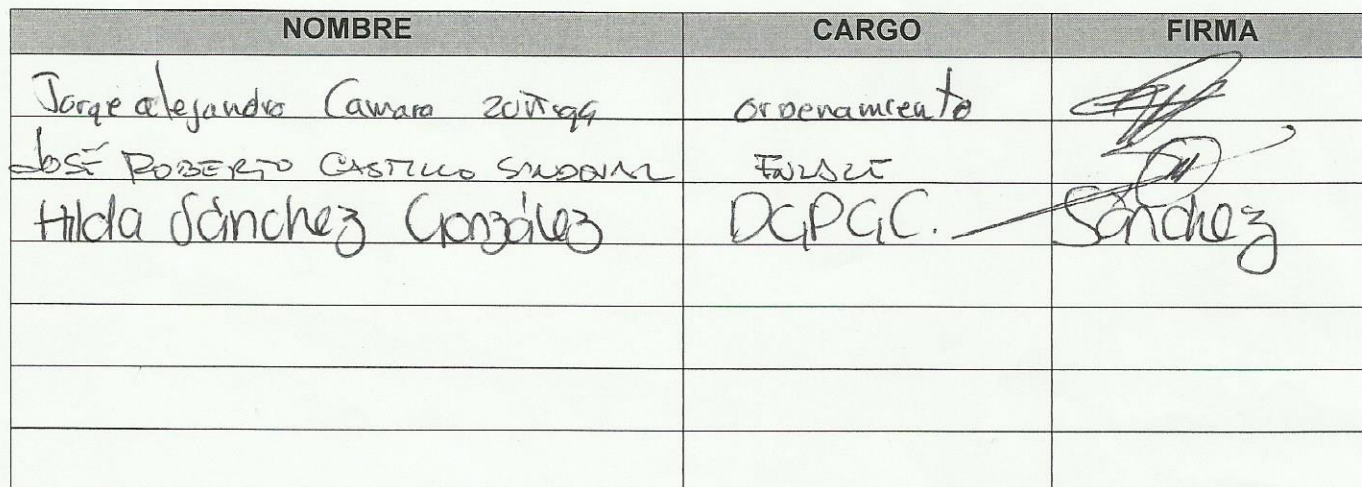 NOMBRE CARGO FIRMA
Jorge alejandro Camara ordenamiento
JOSÉ ROBERTO CASTILLO SANDOVAL ENLACE
Hilda Sánchez González DGPGC. Sánchez